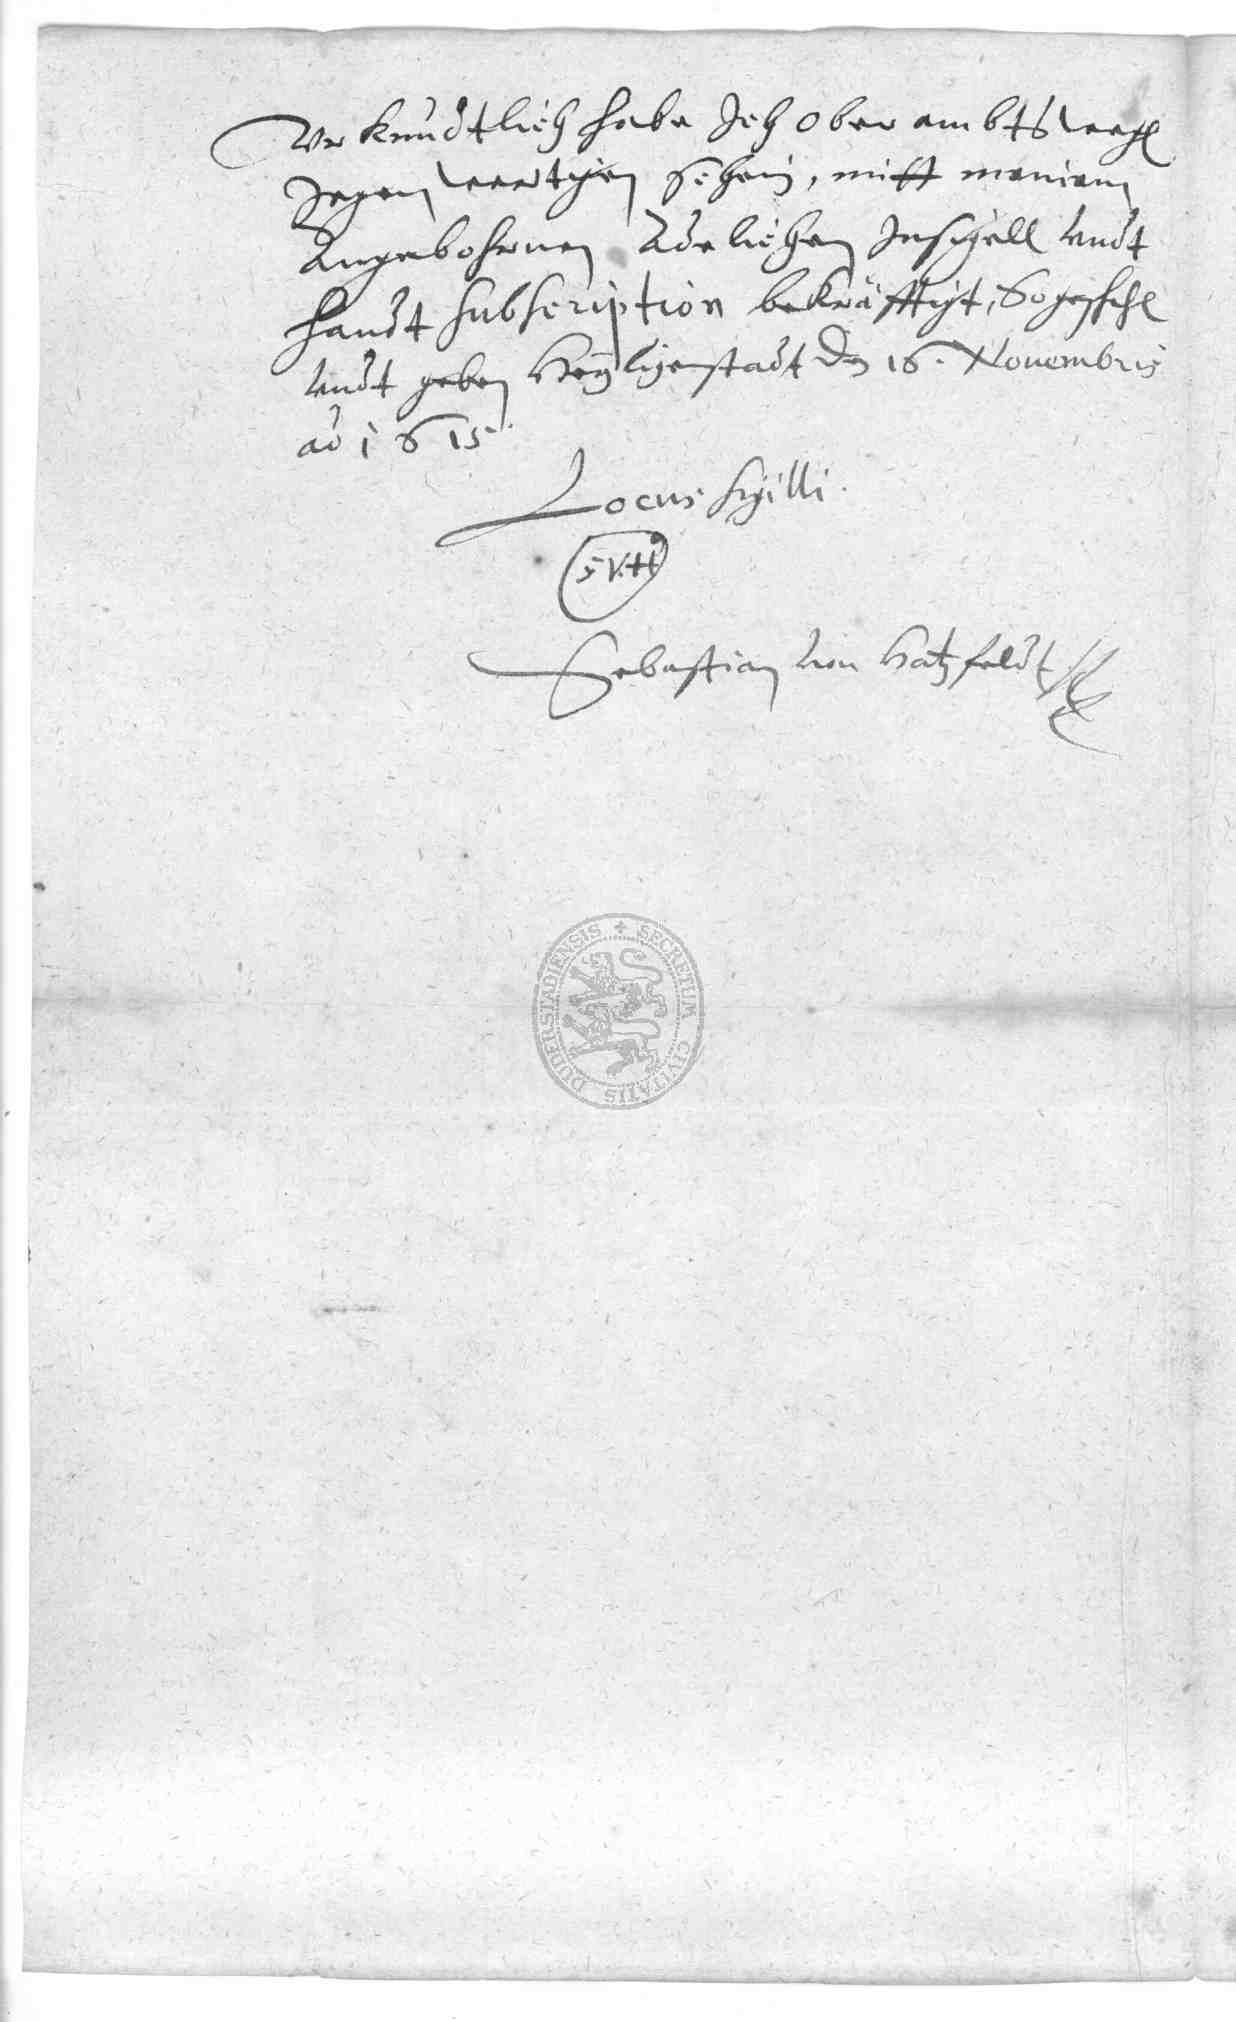 Vrkundtlich habe Ich Oberambts wegen
Jegenwertigen Schein, mitt meinem
Angebohrnen Adelichen Insigell vndt
handt subscription bekräfftigt, So geschehen
vndt geben Heyligenstadt den 16. Novembris
ao 1615.
Locus sigilli.
S V H
Sebastian von Hatzfeldt
SECRETUM CIVITATIS DUDERSTADIENSIS